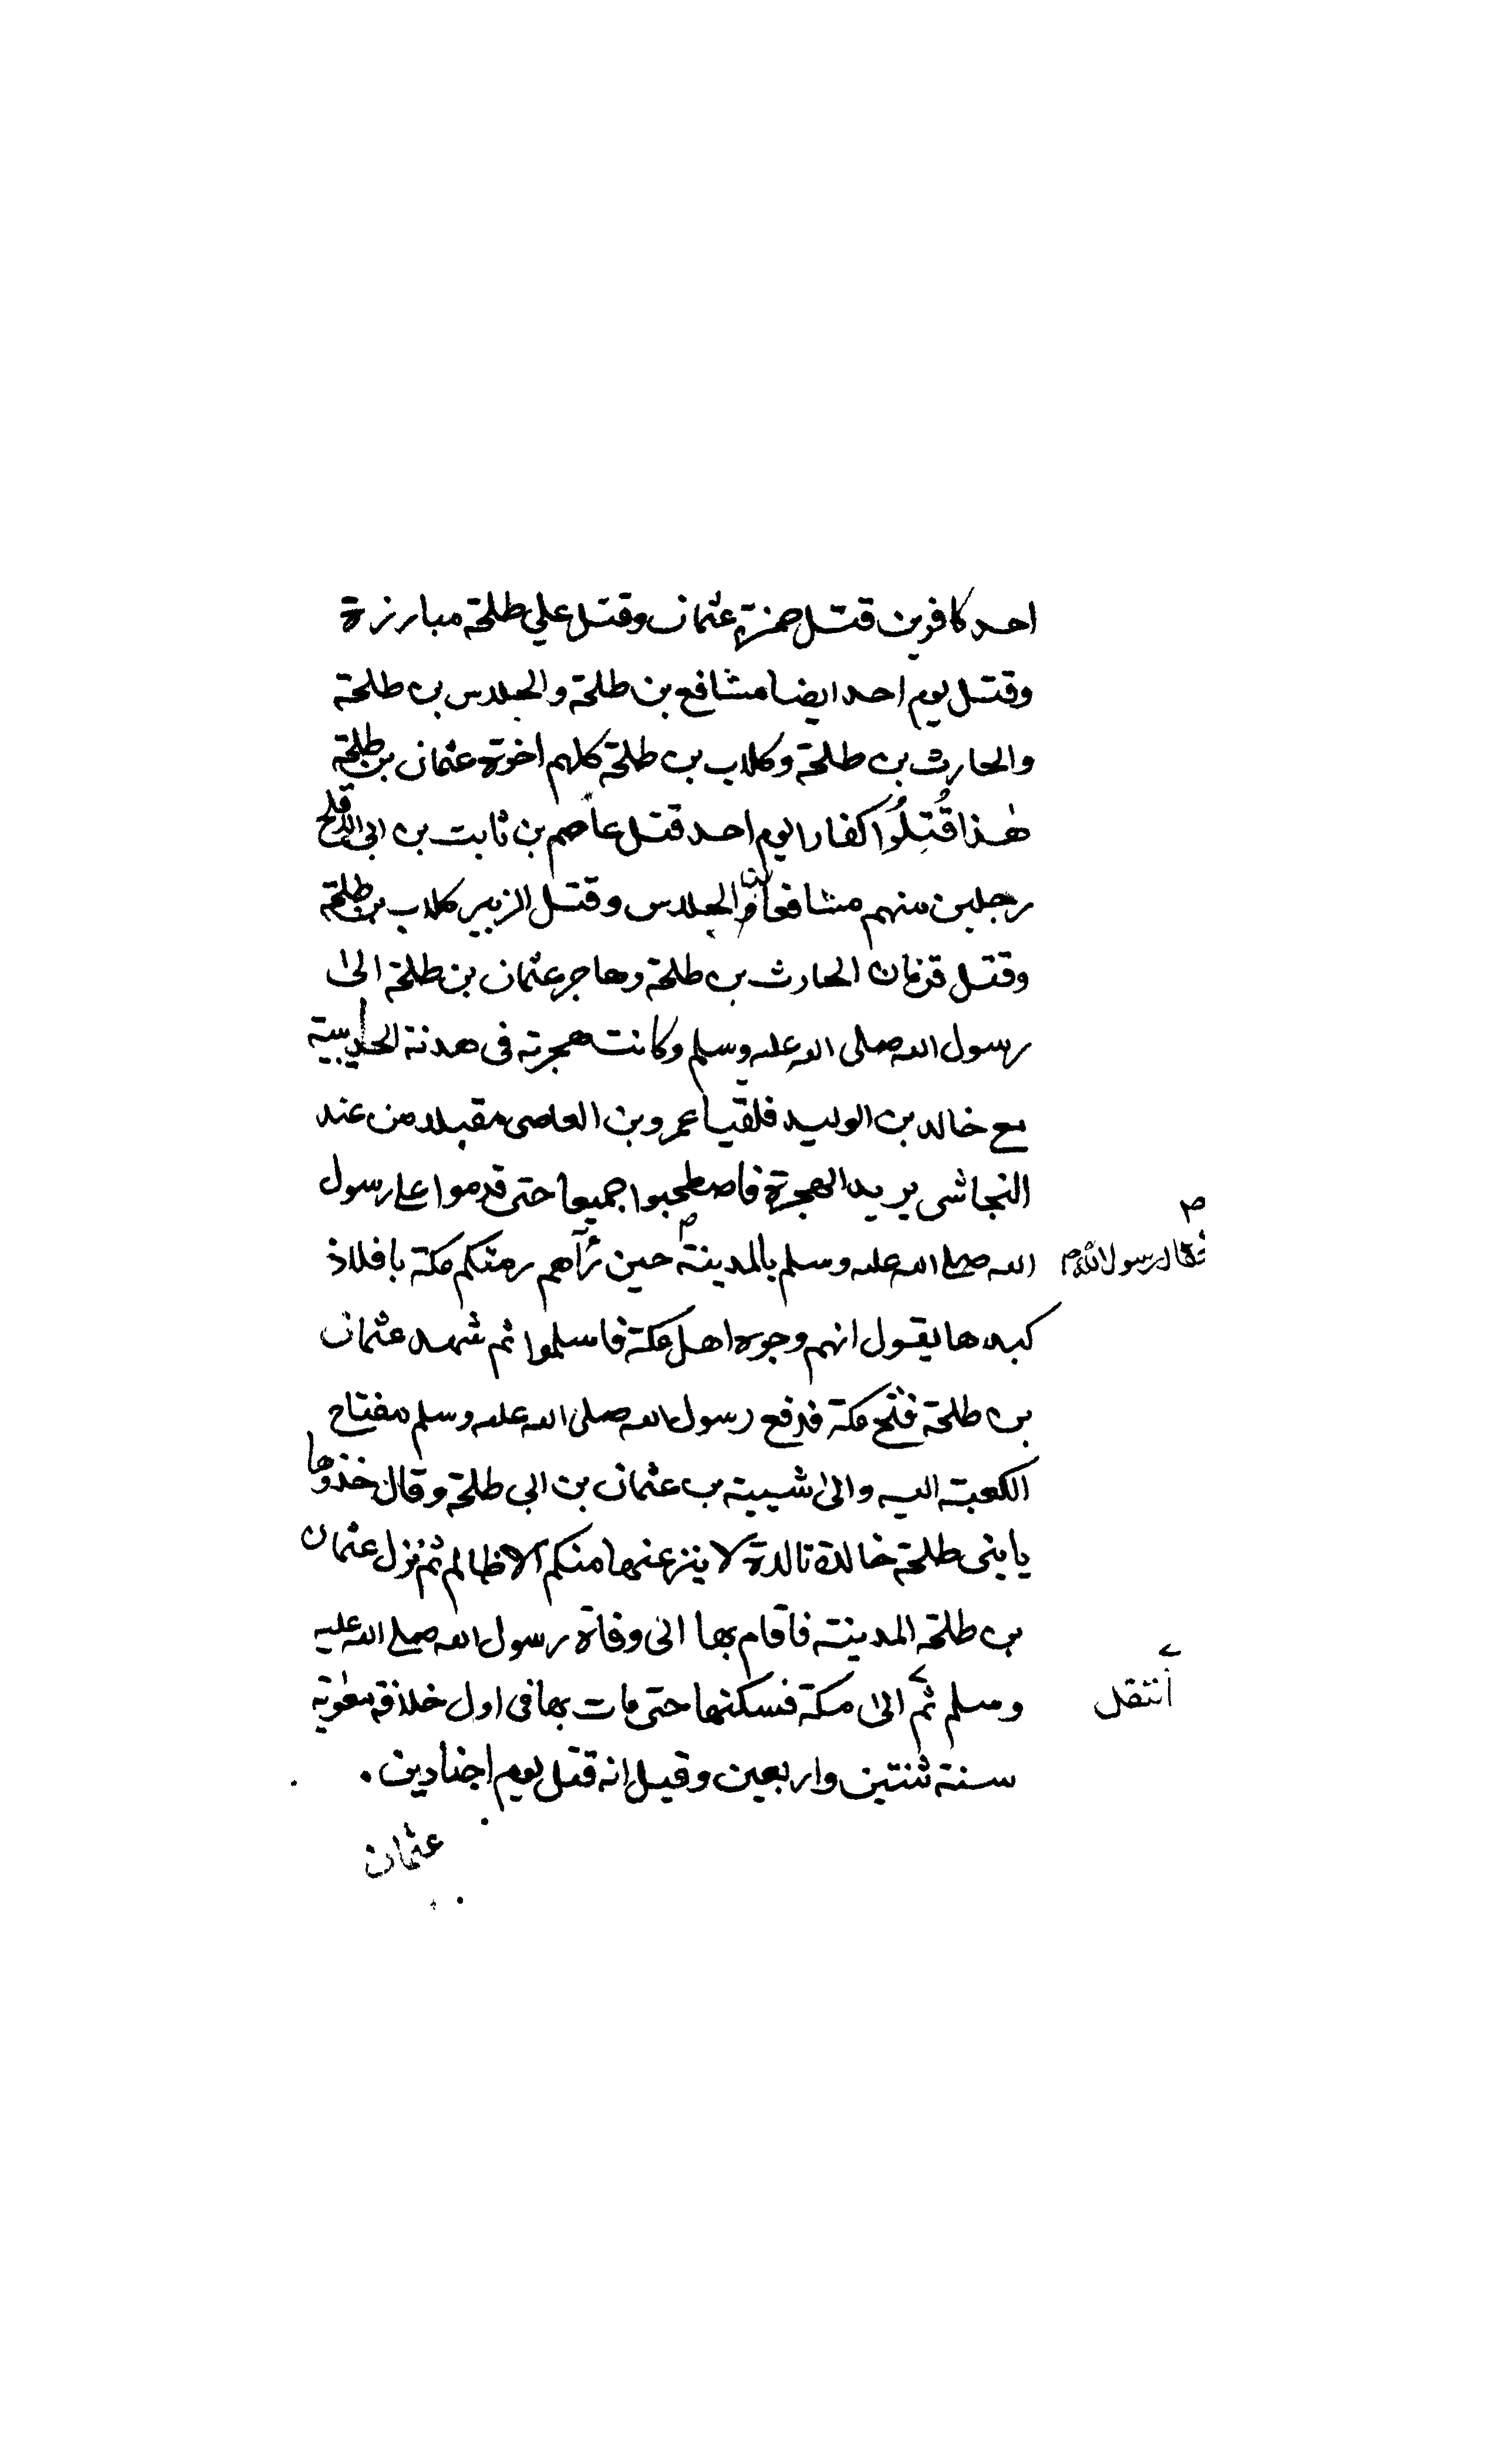 احد كافرين قتل حمزة عثمان وقتل علي طلحة مبارزة
وقتل يوم احد ايضا مشافع بن طلحة والجلاس بن طلحة
والحارث بن طلحة وكلاب بن طلحة كلهم اخوة عثمان بن طلحة
هذا قُتِلُوا كفارا يوم احد قتل عاصم بن ثابت بن ابي الاقلح
رجلين منهم مشافعا والجلاس وقتل الزبير كلاب بن طلحة
وقتل قزمان الحارث بن طلحة وهاجر عثمان بن طلحة الى
رسول الله صلى الله عليه وسلم وكانت هجرته في هدنة الحديبية
مع خالد بن الوليد فلقيا عمرو بن العاصى مقبلا من عند
النجاشى يريد الهجرة فاصطحبوا جميعا حتى قدموا على رسول
الله صلى الله عليه وسلم بالمدينة حين رآهم رمتكم مكة بافلاذ
فقال رسول الله ص
كبدها يقول انهم وجوه اهل مكة فاسلموا ثم شهد عثمان
بن طلحة فتح مكة فدفع رسول الله صلى الله عليه وسلم مفتاح
الكعبة اليه والى شيبة بن عثمان بن ابي طلحة وقال خذوها
يا بني طلحة خالدة تالدة لا ينزعنها منكم الا ظالم ثم نزل عثمان
بن طلحة المدينة فاقام بها الى وفاة رسول الله صلى الله عليه
وسلم ثم الى مكة فسكنها حتى مات بها في اول خلافة معوية
أنتقل
سنة ثنتين واربعين وقيل انه قتل يوم اجنادين .
عثمان